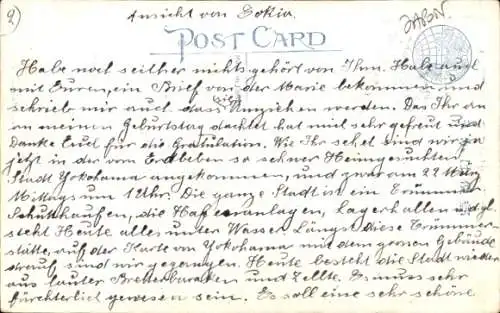 2)
Ansicht von Tokio.
JAPAN.
POST CARD
Habe noch seither nichts gehört von Ihm. Habe auch
mit Euren, ein Brief von der Marie bekommen und
schrieb mir auch dass Sie Umziehen werden. Das Ihr an
an meinen Geburtstag dachtet hat mich sehr gefreut und
Danke Euch für die Gratulation. Wie Ihr sehet sind wir ja
jetzt in der vom Erdbeben so schwer Heimgesuchten
Stadt Yokohama angekommen, und zwar am 22 März
Mittags um 1 Uhr. Die ganze Stadt ist ein Trümmer
Schutthaufen, die Hafenanlagen, Lagerhallen u dgl
steht Heute alles unter Wasser. Längst diese Trümmer
stätte, auf der Karte von Yokohama mit dem grossen Gebäude
drauf sind wir gegangen. Heute besteht die Stadt wieder
aus lauter Bretterbaraken und Zellte. Es muss sehr
fürchterlich gewesen sein. Es soll eine sehr schöne